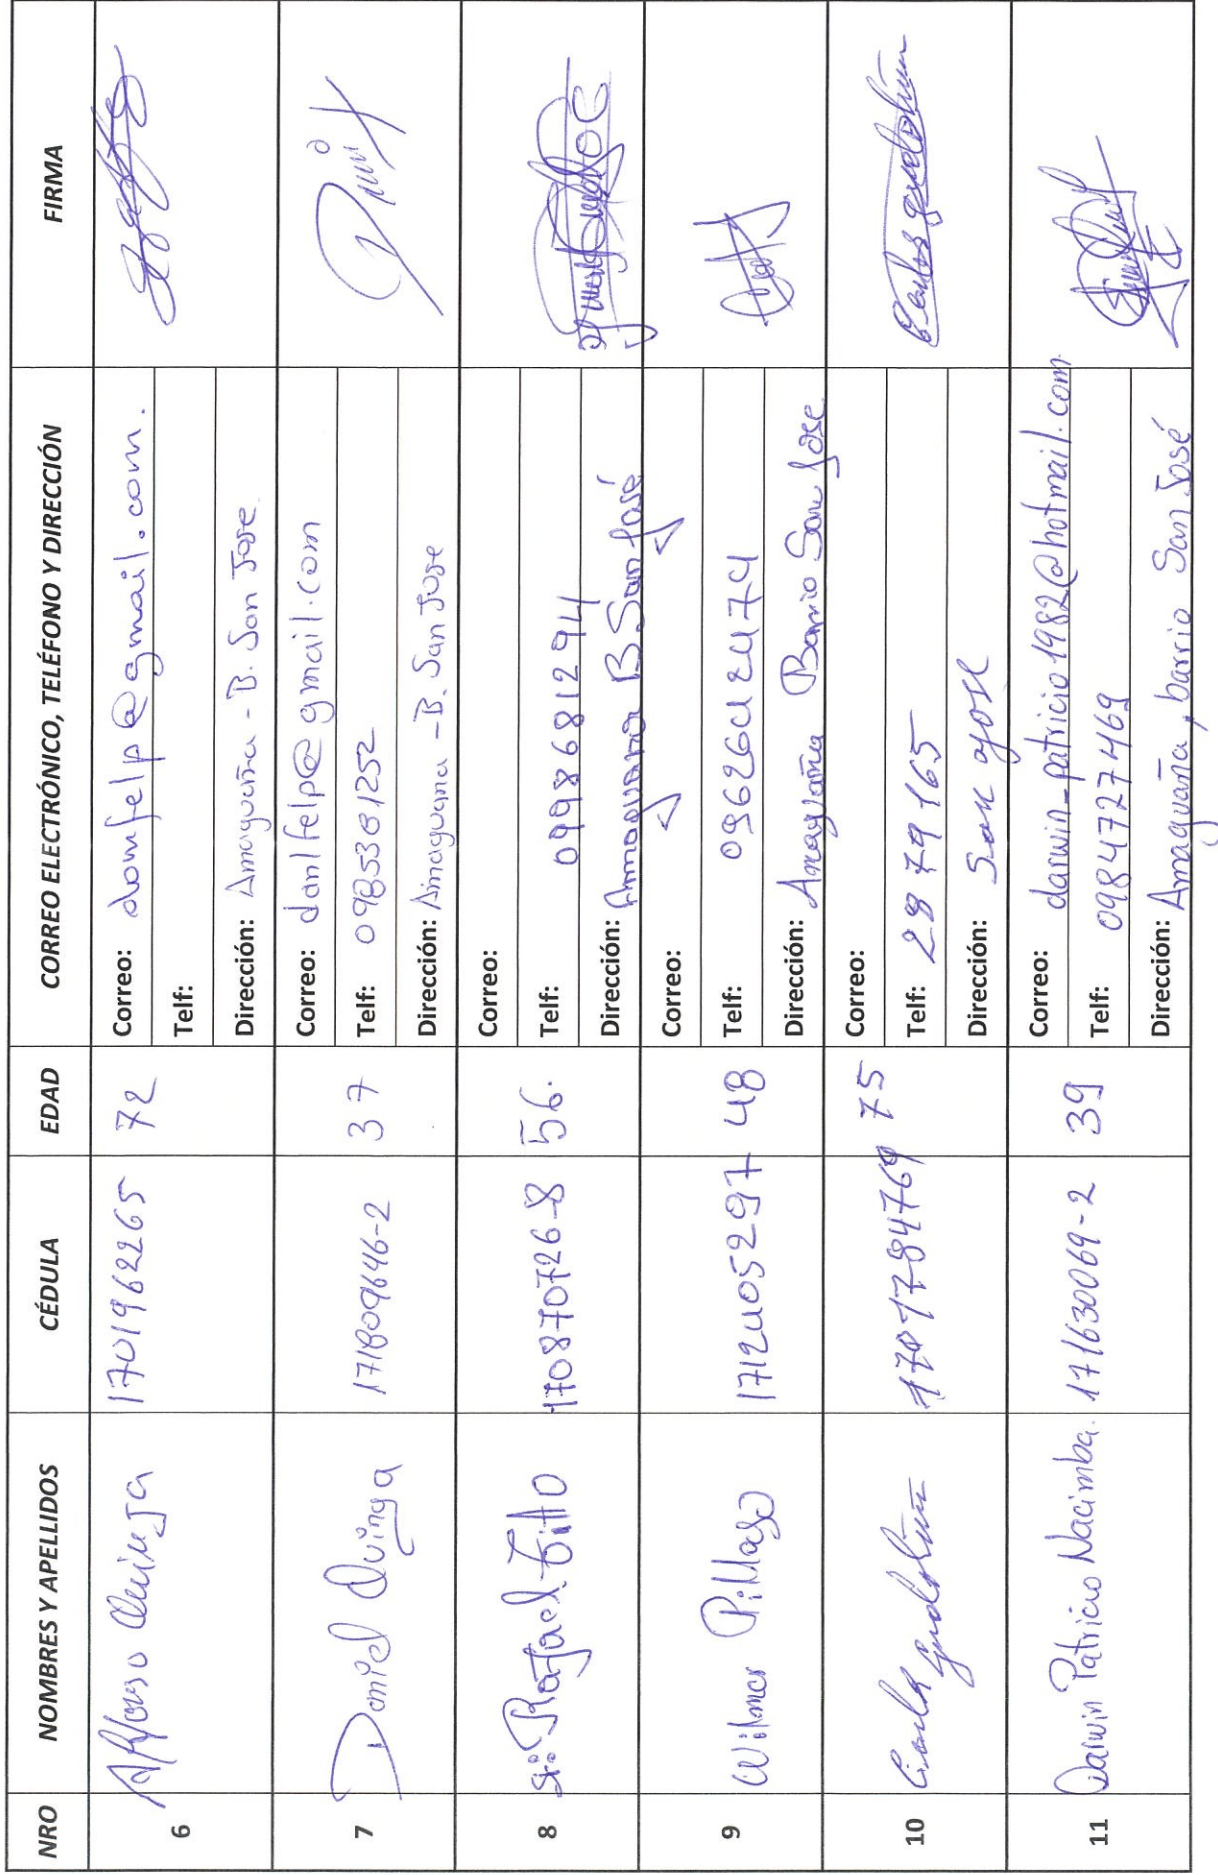 NRO NOMBRES Y APELLIDOS CÉDULA EDAD CORREO ELECTRÓNICO, TELÉFONO Y DIRECCIÓN FIRMA
6 Alfonso Quinga 1701962265 72
Correo: domfelp@gmail.com.
Telf:
Dirección: Amaguaña - B. San Jose.
7 Daniel Quinga 171809646-2 37
Correo: danlfelp@gmail.com
Telf: 0985361252
Dirección: Amaguana - B. San Jose
8 Sr: Rafael Tillo 170870726-8 56.
Correo:
Telf: 0998681294
Dirección: Amaguana B. San José
9 Wilmer Pillajo 1712405297 48
Correo:
Telf: 0962642474
Dirección: Amaguaña Barrio San Jose
10 1701784769 75
Correo:
Telf: 2879165
Dirección: San Jose
11 Darwin Patricio Nacimba. 171630069-2 39
Correo: darwin_patricio1982@hotmail.com
Telf: 0984727469
Dirección: Amaguaña, barrio San José